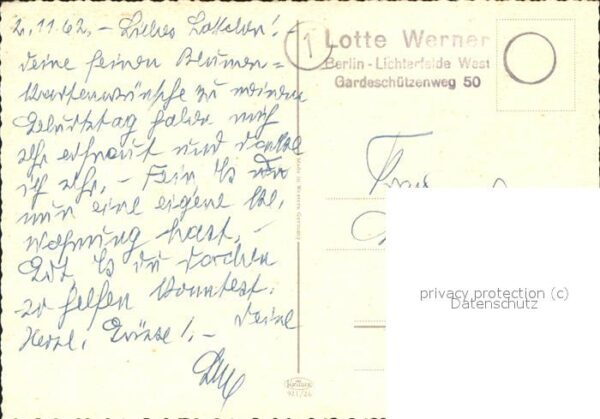 2.11.62. – Liebes Lottchen! –
deine feinen Blumen=
kartenwünsche zu meinem
Geburtstag haben mich
sehr erfreut und danke
ich sehr. – Fein ts du
nun eine eigene kl.
Wohnung hast. –
Gut, ts du
so helfen konntest.
Herzl. Grüße! – deine
1
Lotte Werner
Berlin - Lichterfelde West
Gardeschützenweg 50
Frau
privacy protection (c)
Datenschutz
921/26